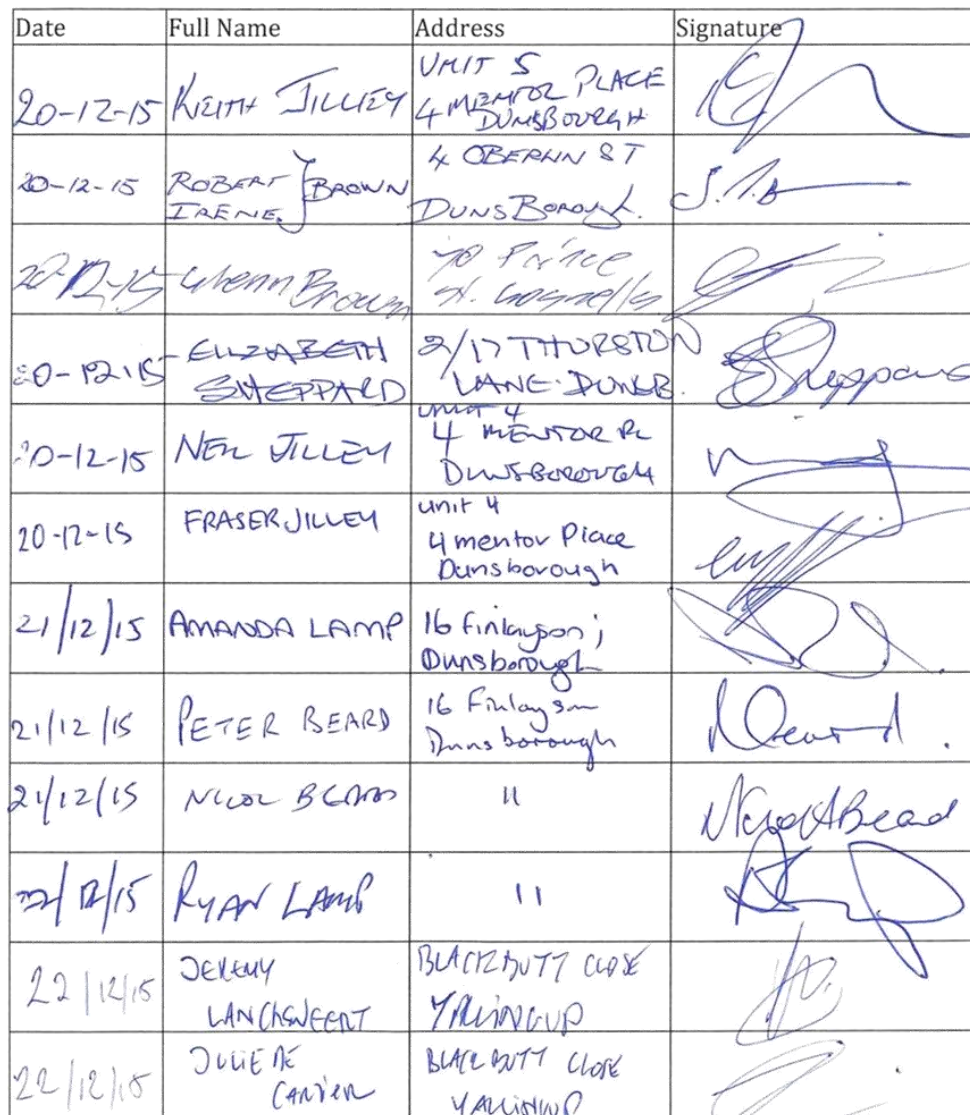 Date Full Name Address Signature
UNIT 5
20-12-15 KEITH JILLEY 4 MENTOR PLACE
DUNSBOURGH
4 OBERLIN ST
20-12-15 ROBERT } BROWN
IRENE DUNSBOROUGH.
20-12-15 Glenn Brown 70 Prince
St. Gosnells
20-12-15 ELIZABETH 2/17 THURSTON
SHEPPARD LANE DUNSB. Sheppard
UNIT 4
20-12-15 NEIL JILLEY 4 MENTOR PL
DUNSBOROUGH
20-12-15 FRASER JILLEY unit 4
4 mentor Place
Dunsborough
21/12/15 AMANDA LAMP 16 Finlayson ;
Dunsborough
21/12/15 PETER BEARD 16 Finlayson
Dunsborough
21/12/15 NICOL BEARD 11 Nicol A Beard
22/12/15 RYAN LAMP 11
22/12/15 JEREMY BLACKBUTT CLOSE
YALLINGUP
22/12/15 JULIE BLACKBUTT CLOSE
YALLINGUP